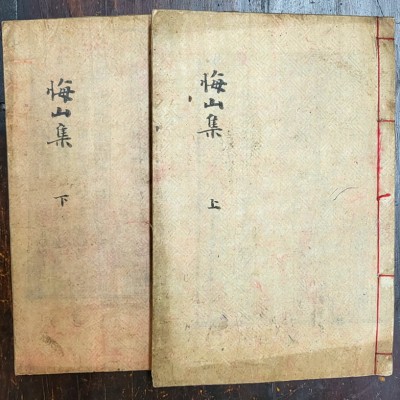 悔山集
上
悔山集
下